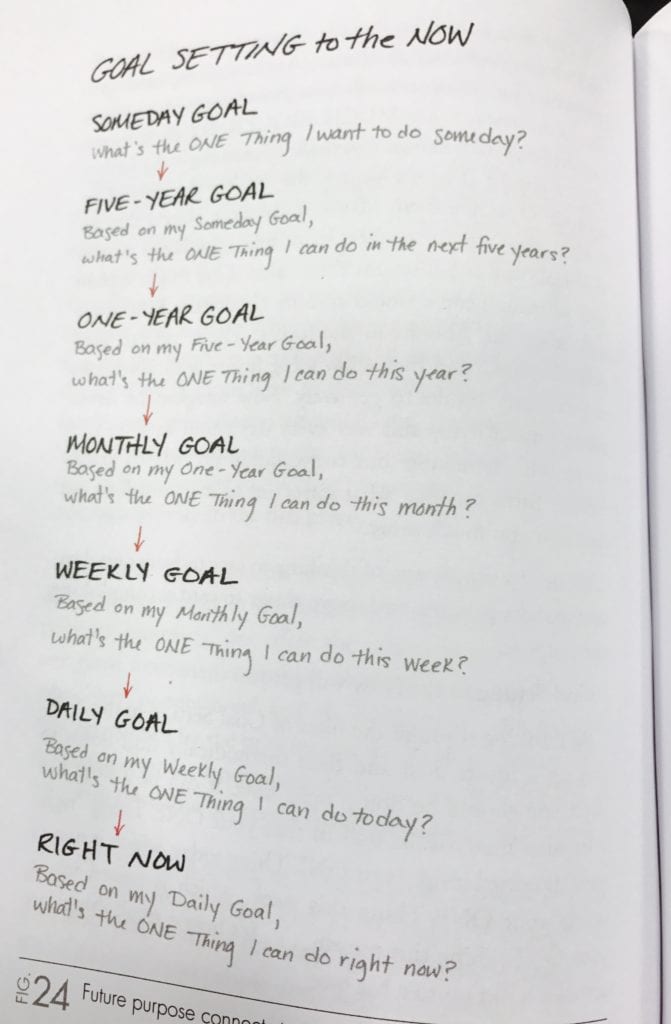 GOAL SETTING to the NOW
SOMEDAY GOAL
What's the ONE Thing I want to do someday?
FIVE-YEAR GOAL
Based on my Someday Goal,
what's the ONE Thing I can do in the next five years?
ONE-YEAR GOAL
Based on my Five-Year Goal,
what's the ONE Thing I can do this year?
MONTHLY GOAL
Based on my One-Year Goal,
what's the ONE Thing I can do this month?
WEEKLY GOAL
Based on my Monthly Goal,
what's the ONE Thing I can do this week?
DAILY GOAL
Based on my Weekly Goal,
what's the ONE Thing I can do today?
RIGHT NOW
Based on my Daily Goal,
what's the ONE Thing I can do right now?
FIG. 24 Future purpose